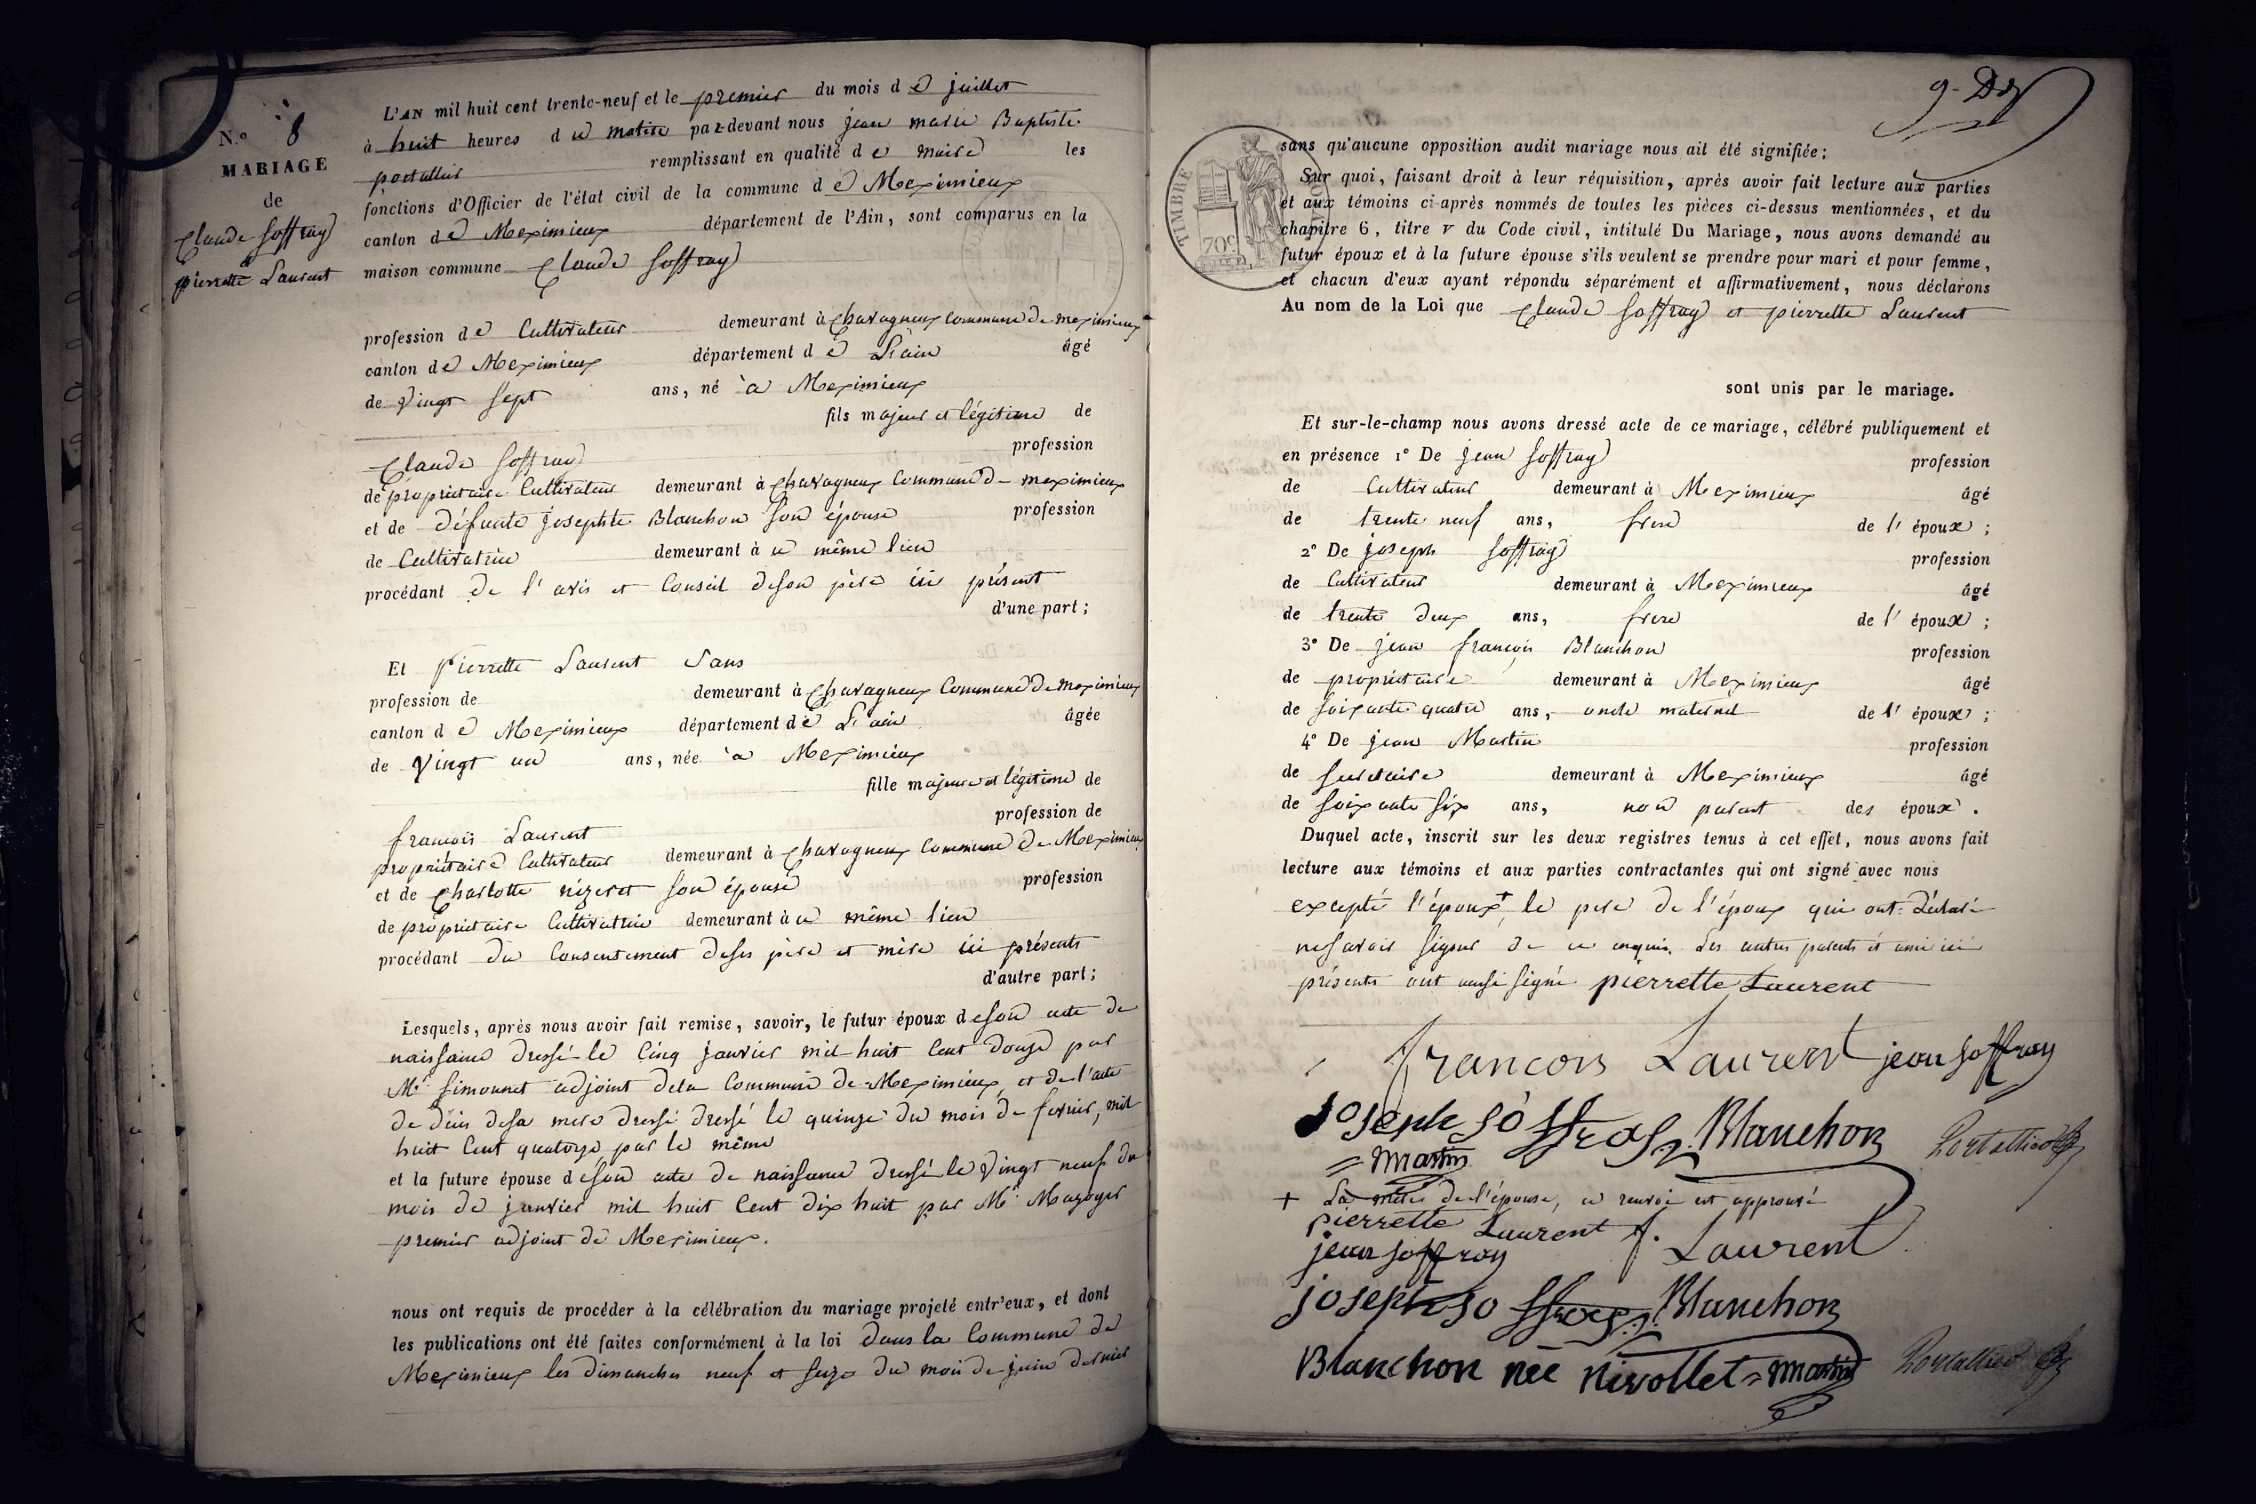 N.º 8
MARIAGE
de
Claude Soffray
et
pierrette Laurent
L'AN mil huit cent trente-neuf et le premier du mois de juillet
à huit heures du matin par-devant nous jean marie Baptiste
portallier remplissant en qualité de maire les
fonctions d'Officier de l'état civil de la commune de Meximieux
canton de Meximieux département de l'Ain, sont comparus en la
maison commune Claude Soffray
profession de Cultivateur demeurant à Chavagneux Commune de meximieux
canton de Meximieux département de L'ain âgé
de Vingt Sept ans, né à Meximieux
fils majeur et légitime de
Claude Soffray profession
de propriétaire Cultivateur demeurant à Chavagneux Commune de meximieux
et de défunte josephte Blanchon Son épouse profession
de Cultivatrice demeurant à ce même lieu
procédant de l'avis et Conseil de son père ici présent
d'une part ;
Et Pierrette Laurent Sans
profession de demeurant à Chavagneux Commune de Meximieux
canton de Meximieux département de L'ain âgée
de Vingt un ans, née à Meximieux
fille majeure et légitime de
françois Laurent profession de
propriétaire Cultivateur demeurant à Chavagneux Commune de Meximieux
et de Charlotte nizeret Son épouse profession
de propriétaire Cultivatrice demeurant à ce même lieu
procédant du Consentement de ses père et mère ici présents
d'autre part ;
Lesquels, après nous avoir fait remise, savoir, le futur époux de son acte de
naissance dressé le Cinq janvier mil huit Cent douze par
Mr. Simonnet adjoint de la Commune de Meximieux, et de l'acte
de décès de sa mère dressé dressé le quinze du mois de fevrier, mil
huit Cent quatorze par le même
et la future épouse de son acte de naissance dressé le Vingt neuf du
mois de janvier mil huit Cent dix huit par Mr. Mazoyer
premier adjoint de Meximieux.
nous ont requis de procéder à la célébration du mariage projeté entr'eux, et dont
les publications ont été faites conformément à la loi dans la Commune de
Meximieux les dimanches neuf et seize du mois de juin dernier
9.
TIMBRE ROYAL
70c
sans qu'aucune opposition audit mariage nous ait été signifiée ;
Sur quoi, faisant droit à leur réquisition, après avoir fait lecture aux parties
et aux témoins ci-après nommés de toutes les pièces ci-dessus mentionnées, et du
chapitre 6, titre v du Code civil, intitulé Du Mariage, nous avons demandé au
futur époux et à la future épouse s'ils veulent se prendre pour mari et pour femme,
et chacun d'eux ayant répondu séparément et affirmativement, nous déclarons
Au nom de la Loi que Claude Soffray et pierrette Laurent
sont unis par le mariage.
Et sur-le-champ nous avons dressé acte de ce mariage, célébré publiquement et
en présence 1º De jean Soffray profession
de Cultivateur demeurant à Meximieux âgé
de trente neuf ans, frere de l'époux ;
2º De joseph Soffray profession
de Cultivateur demeurant à Meximieux âgé
de trente deux ans, frere de l'époux ;
3º De jean françois Blanchon profession
de propriétaire demeurant à Meximieux âgé
de soixante quatre ans, oncle maternel de l'époux ;
4º De jean Martin profession
de Secretaire demeurant à Meximieux âgé
de soixante six ans, non parent des époux.
Duquel acte, inscrit sur les deux registres tenus à cet effet, nous avons fait
lecture aux témoins et aux parties contractantes qui ont signé avec nous
excepté l'époux + le pere de l'époux qui ont déclaré
ne savoir signer de ce enquis. Les autres parents et ami ici
présents ont aussi signé pierrette Laurent
francois Laurent jean soffray
Joseph soffray Blanchon Portallier
Martin
+ La mère de l'épouse, ce renvoi est approuvé
pierrette Laurent f. Laurent
jean soffray
joseph soffray Blanchon
Blanchon neè nivollet Martin Portallier